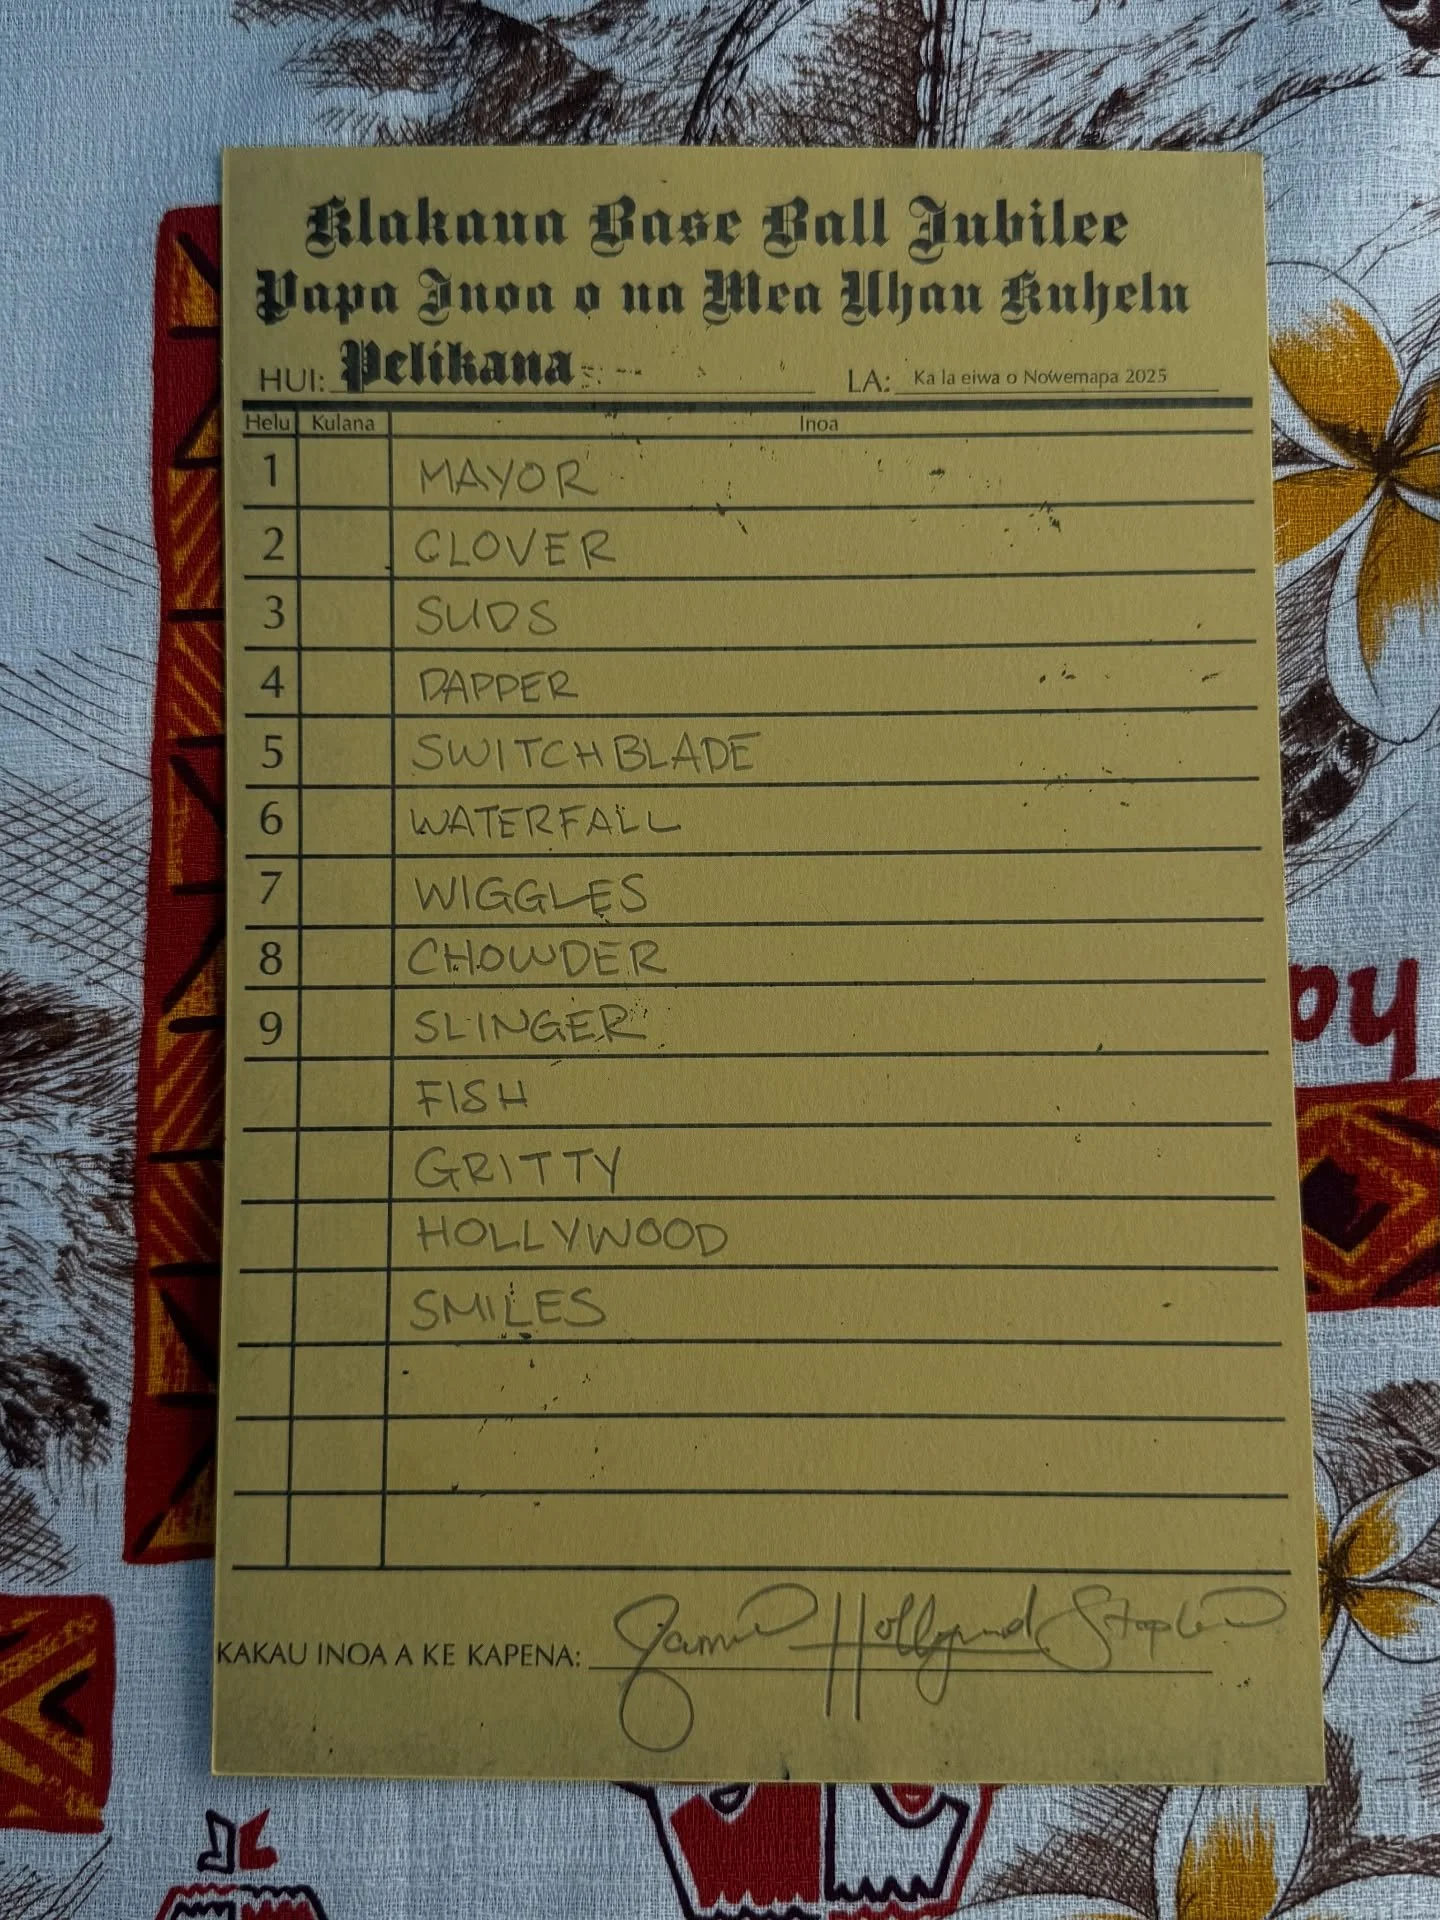 Elakana Base Ball Jubilee
Papa Inoa o na Mea Uhau Kuhelu
HUI: Pelikana LA: Ka la eiwa o Nowemapa 2025
Helu Kulana Inoa
1 MAYOR
2 CLOVER
3 SUDS
4 DAPPER
5 SWITCHBLADE
6 WATERFALL
7 WIGGLES
8 CHOWDER
9 SLINGER
FISH
GRITTY
HOLLYWOOD
SMILES
KAKAU INOA A KE KAPENA: Hollywood
oy